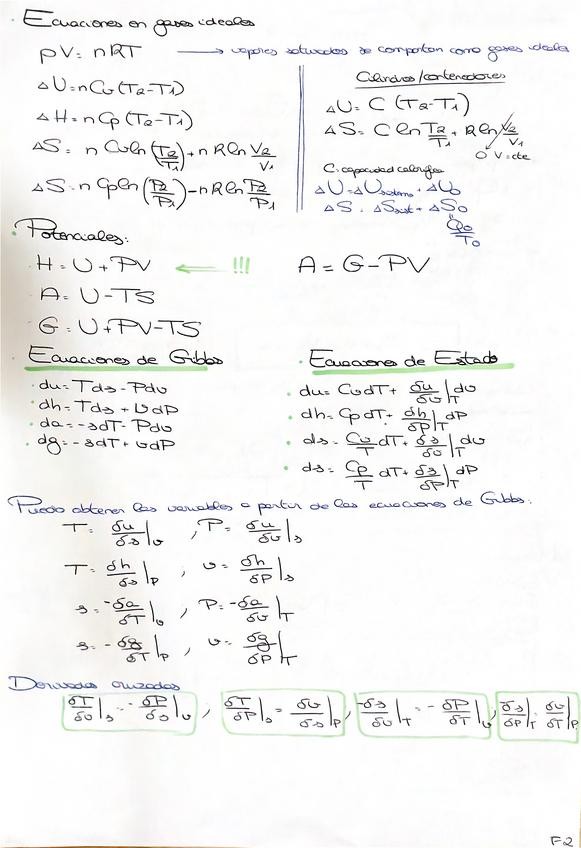 Ecuaciones en gases ideales
pV = nRT → vapores saturados se comportan como gases ideales
ΔU = nCv(T2-T1)
ΔH = nCp(T2-T1)
ΔS = nCvln(T2/T1) + nRln V2/V1
ΔS = nCpln(P2/P1) - nRln P2/P1
Cilindros/contenedores
ΔU = C(T2-T1)
ΔS = C ln T2/T1 + Rln V2/V1
0 V=cte
C: capacidad calorífica
ΔU = ΔUsistema + ΔU0
ΔS = ΔSsist + ΔS0
Q0/T0
· Potenciales:
· H = U + PV ← !!!
A = G - PV
· A = U - TS
· G = U + PV - TS
· Ecuaciones de Gibbs
· du = Tds - Pdv
· dh = Tds + vdP
· da = -sdT - Pdv
· dg = -sdT + vdP
· Ecuaciones de Estado
· du = CvdT + δu/δv|T dv
· dh = CpdT + δh/δP|T dP
· ds = Cv/T dT + δs/δv|T dv
· ds = Cp/T dT + δs/δP|T dP
Puedo obtener las variables a partir de las ecuaciones de Gibbs:
T = δu/δs|v , P = δu/δv|s
T = δh/δs|P , v = δh/δP|s
s = -δa/δT|v , P = -δa/δv|T
s = -δg/δT|P , v = δg/δP|T
Derivadas cruzadas
δT/δv|s = -δP/δs|v ; δT/δP|s = δv/δs|P ; -δs/δv|T = -δP/δT|v ; δs/δP|T = δv/δT|P
F-2